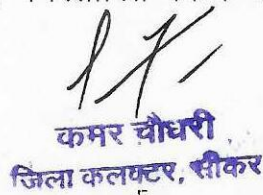 कमर चौधरी
जिला कलक्टर, सीकर